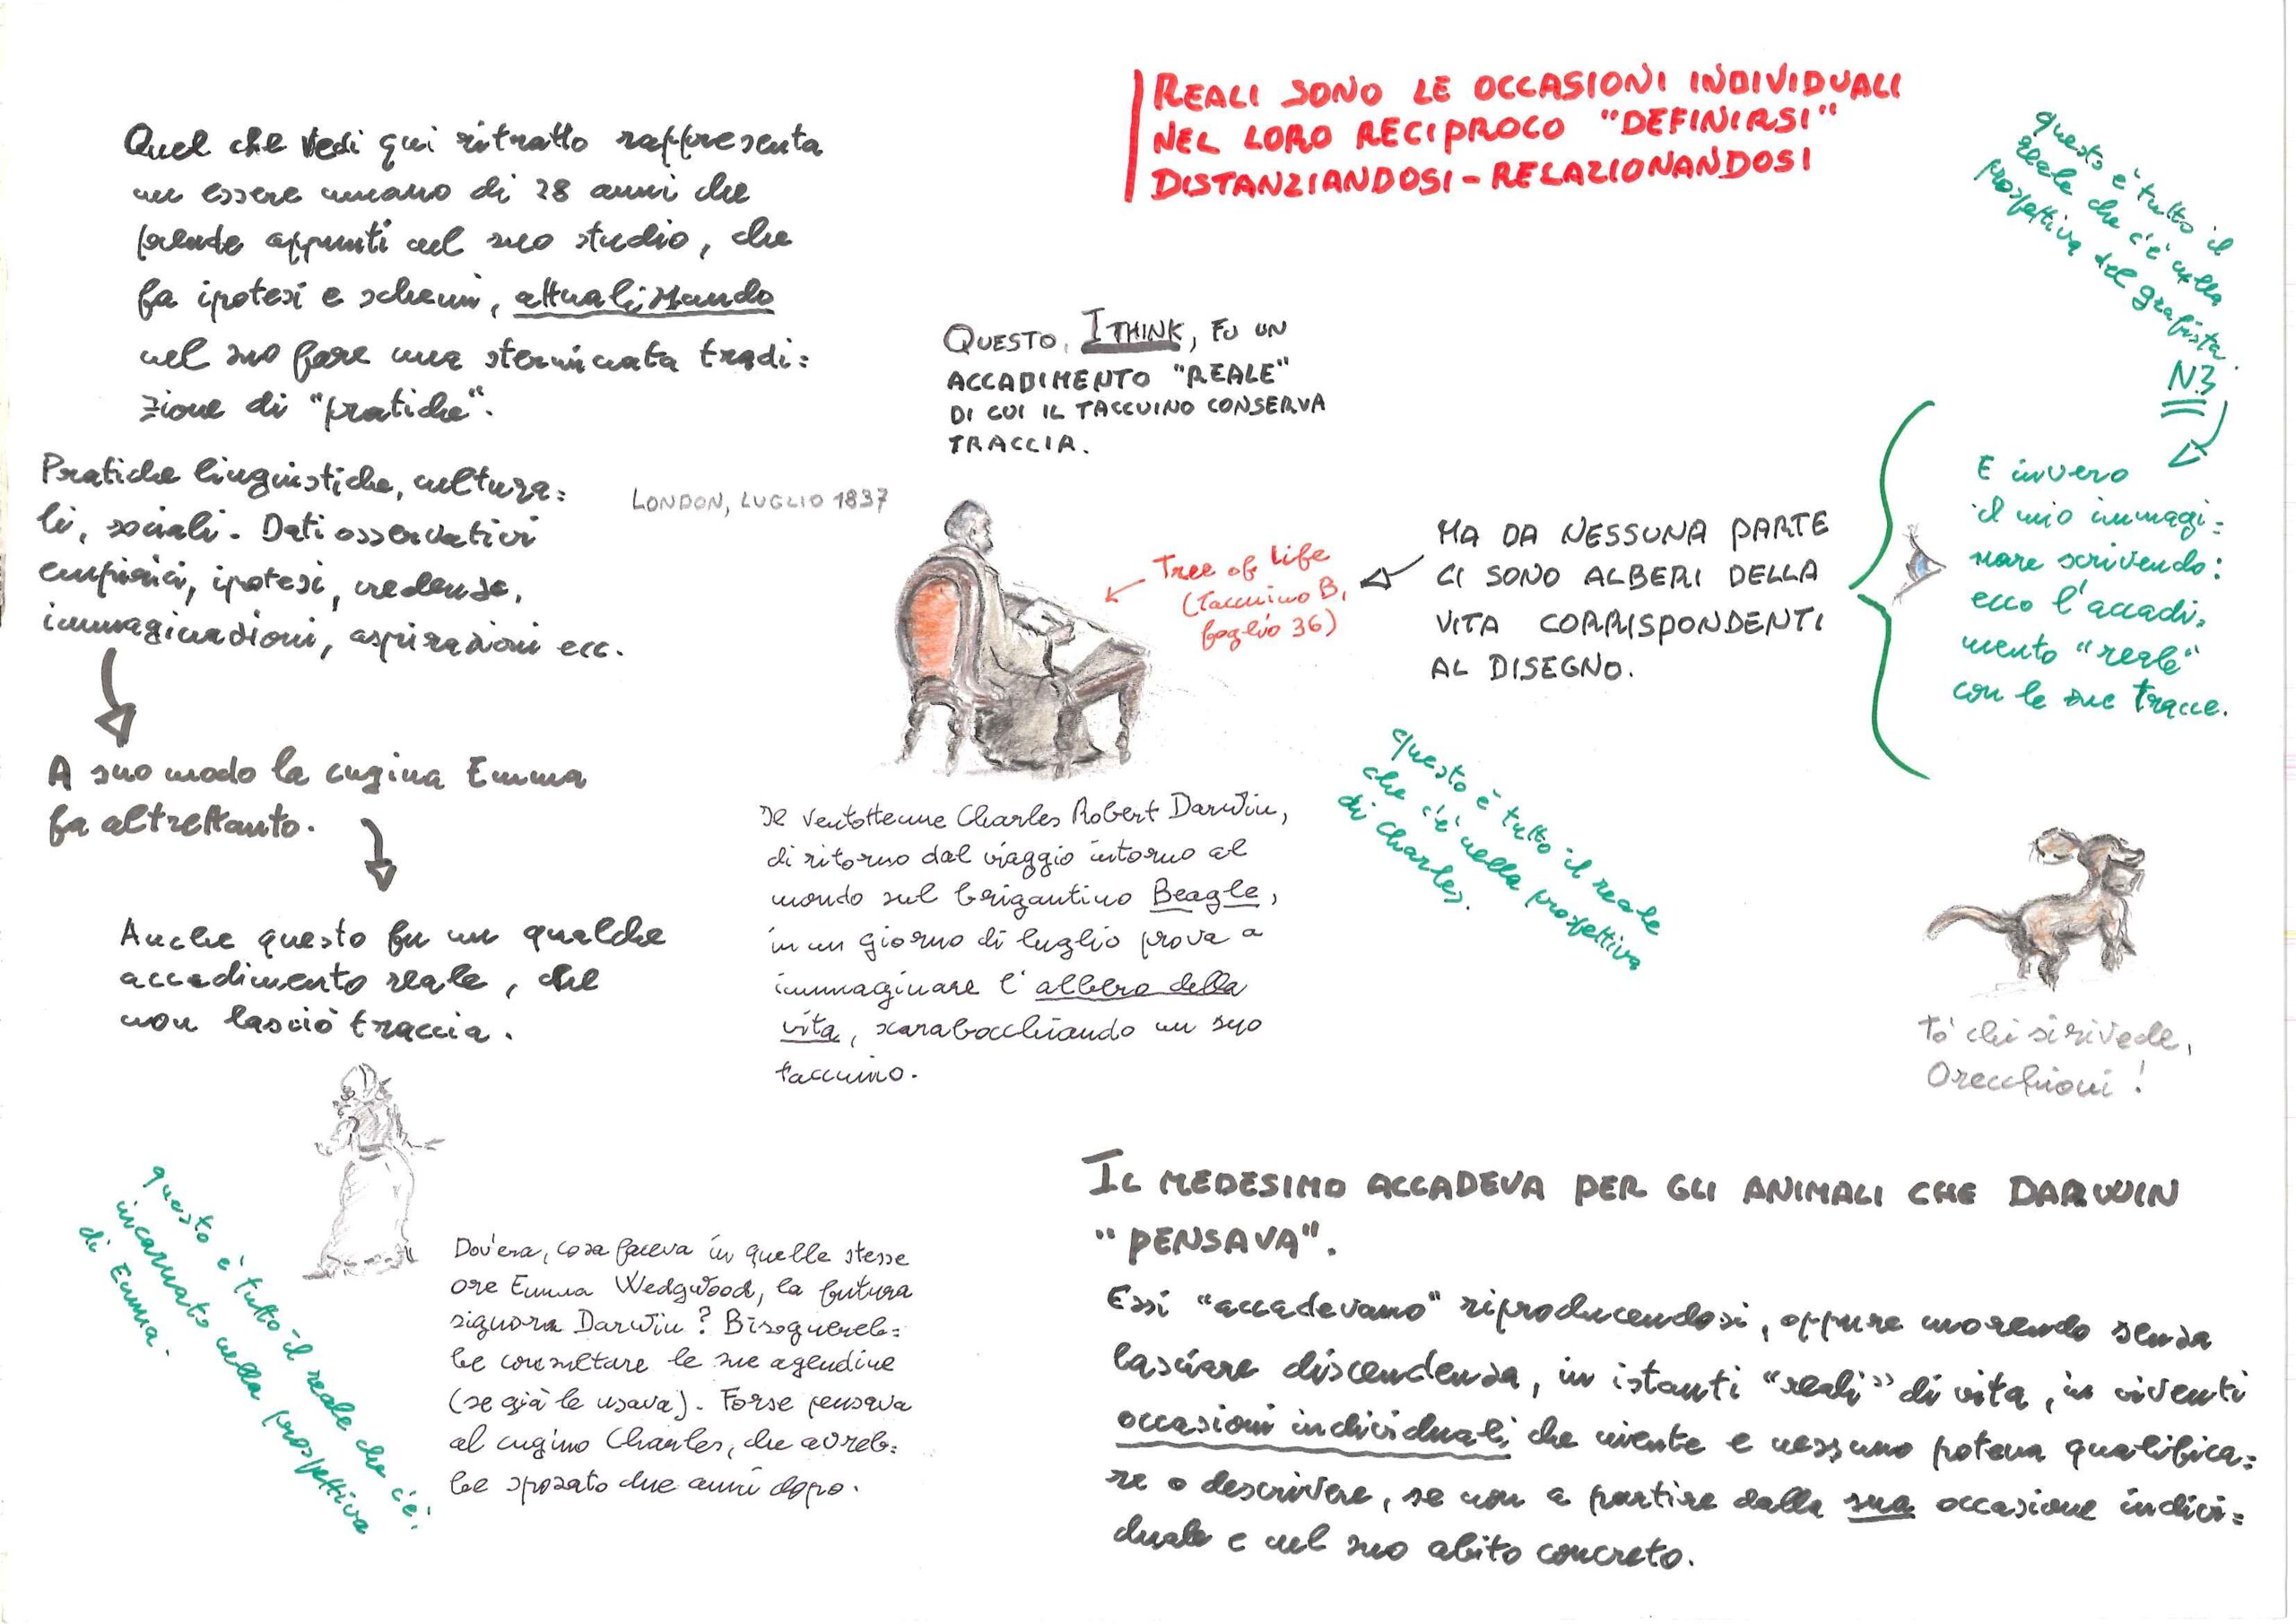 REALI SONO LE OCCASIONI INDIVIDUALI
NEL LORO RECIPROCO "DEFINIRSI"
DISTANZIANDOSI - RELAZIONANDOSI
Quel che vedi qui ritratto rappresenta
un essere umano di 28 anni che
prende appunti nel suo studio, che
fa ipotesi e schemi, attualizzando
nel suo fare una sterminata tradi=
zione di "pratiche".
Pratiche linguistiche, cultura=
li, sociali. Dati osservativi
empirici, ipotesi, credenze,
immaginazioni, aspirazioni ecc.
A suo modo la cugina Emma
fa altrettanto.
Anche questo fu un qualche
accadimento reale, che
non lasciò traccia.
questo è tutto il reale che c'è,
incarnato nella prospettiva
di Emma.
Dov'era, cosa faceva in quelle stesse
ore Emma Wedgwood, la futura
signora Darwin? Bisognereb=
be consultare le sue agendine
(se già le usava). Forse pensava
al cugino Charles, che avreb=
be sposato due anni dopo.
QUESTO, I THINK, FU UN
ACCADIMENTO "REALE"
DI CUI IL TACCUINO CONSERVA
TRACCIA.
LONDON, LUGLIO 1837
Tree of Life
(Taccuino B,
foglio 36)
Il ventottenne Charles Robert Darwin,
di ritorno dal viaggio intorno al
mondo sul brigantino Beagle,
in un giorno di luglio prova a
immaginare l'albero della
vita, scarabocchiando un suo
taccuino.
MA DA NESSUNA PARTE
CI SONO ALBERI DELLA
VITA CORRISPONDENTI
AL DISEGNO.
questo è tutto il reale
che c'è nella prospettiva
di Charles.
questo è tutto il
reale che c'è nella
prospettiva del grafista
N3
E invero
il mio immagi=
nare scrivendo:
ecco l'accadi=
mento "reale"
con le sue tracce.
To' chi si rivede,
Orecchioni!
IL MEDESIMO ACCADEVA PER GLI ANIMALI CHE DARWIN
"PENSAVA".
Essi "accadevano" riproducendosi, oppure morendo senza
lasciare discendenza, in istanti "reali" di vita, in viventi
occasioni individuali che niente e nessuno poteva qualifica=
re o descrivere, se non a partire dalla sua occasione indivi=
duale e nel suo abito concreto.